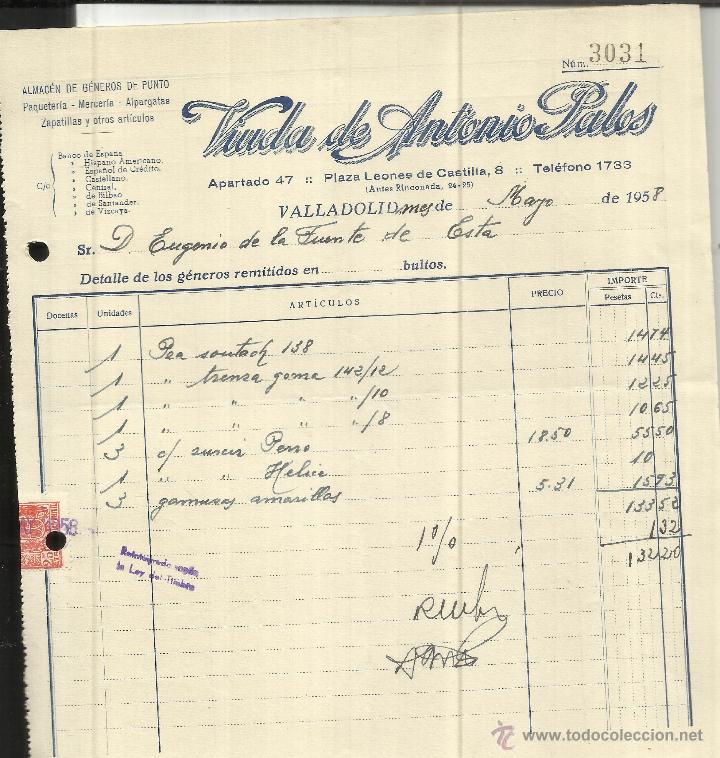 Núm. 3031
ALMACÉN DE GÉNEROS DE PUNTO
Paquetería - Mercería - Alpargatas
Zapatillas y otros artículos
Viuda de Antonio Palos
C/c
Banco de España
» Hispano Americano.
» Español de Crédito.
» Castellano.
» Central.
» de Bilbao
» de Santander.
» de Vizcaya.
Apartado 47 :: Plaza Leones de Castilla, 8 :: Teléfono 1733
(Antes Rinconada, 24-25)
VALLADOLID mes de Mayo de 1958
Sr. D Eugenio de la Fuente de Esta
Detalle de los géneros remitidos en bultos.
Docenas Unidades ARTÍCULOS PRECIO IMPORTE
Pesetas Cts.
1 Pza soutach 138 1474
1 " trenza goma 142/12 1445
1 " " " " /10 1225
1 " " " " /8 1065
3 c/ zurcir Perro 18.50 5550
1 " " Helice 10
3 gamuzas amarillas 5.31 1593
13352
1% 132
13220
58
Reintegrado según
la Ley del Timbre
www.todocoleccion.net